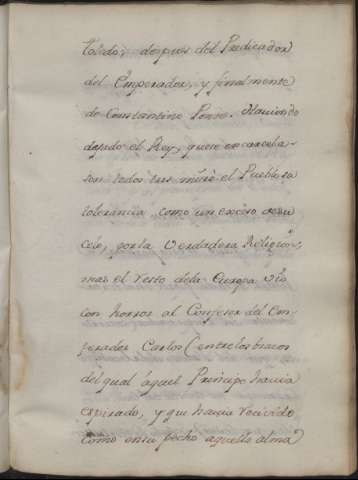 Toledo; despues del Predicador
del Emperador, y finalmente
de Constantino Ponce. Haviendo
dejado el Rey, que se encarcela-
sen todos tres miró el Pueblo su
tolerancia como un exceso de su
celo, por la verdadera Religion;
mas el resto de la Europa vió
con horror al Confesor del Em-
perador Carlos (entre los brazos
del qual aquel Principe havia
espirado, y que havia recivido
como en su pecho aquella alma